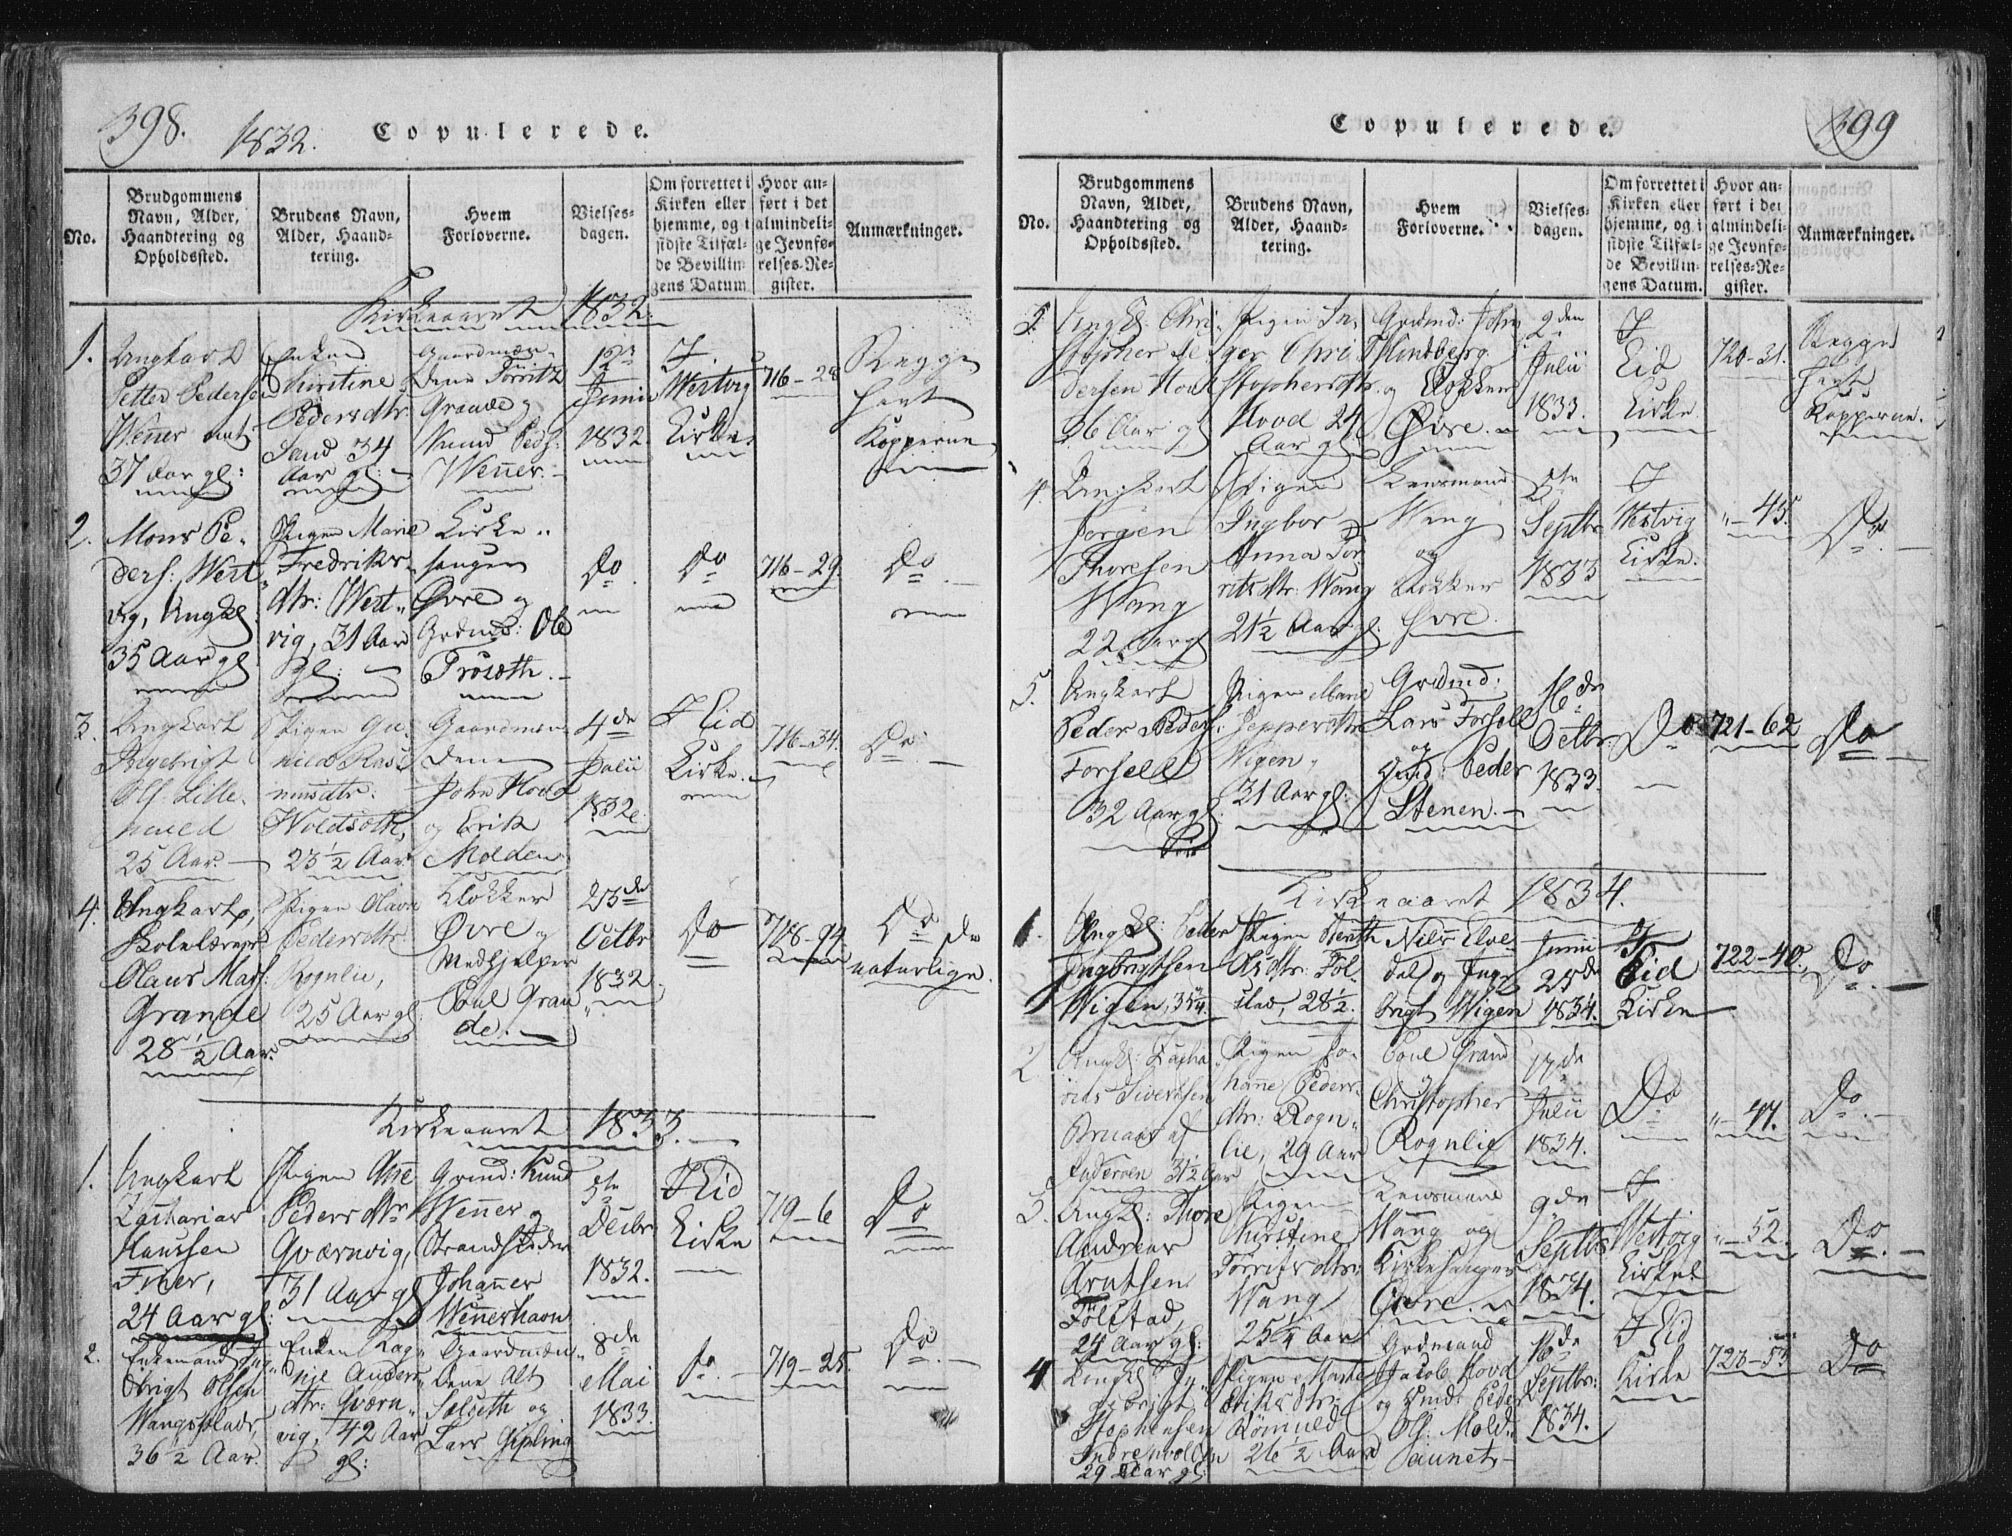 398.
1832.
Copulerede.
No.
Brudgommens
Navn, Alder,
Haandtering og
Opholdssted.
Brudens Navn,
Alder, Haand-
tering.
Hvem
Forloverne.
Vielses-
dagen.
Om forrettet i
Kirken eller
hjemme, og i
sidste Tilfæl-
de Bevillin-
gens Datum
Hvor an-
ført i det
almindeli-
ge Jevnfø-
relses-Re-
gister.
Anmærkninger.
Kirkeaaret 1832.
1.
Ungkarl
Petter Pedersen
Wenner
37 Aar gl:
Enken
Christine
Pedersdtr
Sand 34
Aar gl:
Gaardmæn-
dene Torris
Grande og
Knud Peds:
Wenner.
12te
Junii
1832.
I
Westvig
Kirke
716-28
Begge
havt
Kopperne
2.
Mons Pe-
ders: West-
vig, Ungkl.
35 Aar gl
Pigen Marie
Fredriks-
dtr: West-
vig, 31 Aar
gl:
Kirke-
sanger
Øvre og
Grdmd: Ole
Trøsæth.
Do
Do
716-29.
Do
3.
Ungkarl
Ingebrigt
Ols: Litle-
25 Aar
Pigen Gu-
nild Ras-
musdtr:
Woldsæth,
23 1/2 Aar.
Gaardmæn-
dene
John Hovd
og Erik
Molden
4de
Julii
1832.
I Eid
Kirke.
716-34.
Do
4.
Ungkarl,
Skolelærer
Olaus Mas:
Grande
28 1/2 Aar.
Pigen Olava
Pedersdtr:
Rognlie,
25 Aar gl.
Klokker
Øvre og
Medhjelper
Poul Gran-
de.
23de
Octbr
1832.
Do
718-94.
Do
naturlige.
Kirkeaaret 1833.
1.
Ungkarl
Zacharias
Hanssen
24 Aar gl:
Pigen Ane
Pedersdtr
Qværnvig,
31 Aar gl
Grmd: Knud
Wenner og
Strandsidder
Johanner
Wennerhavn
5te
Decbr
1832.
I Eid
Kirke
719-6
Do
2.
Enkemand In-
gebrigt Olsen
Wangsplads,
36 1/2 Aar.
Enken Rag-
nie Anders-
dtr: Qværn-
vig, 42 Aar
gl:
Gaardmæn-
dene Alt
Sælseth og
Lars Gipling
8de
Mai
1833.
Do
719-25.
Do
399
Copulerede.
No.
Brudgommens
Navn, Alder,
Haandtering og
Opholdssted.
Brudens Navn,
Alder, Haand-
tering.
Hvem
Forloverne.
Vielses-
dagen.
Om forrettet i
Kirken eller
hjemme, og i
sidste Tilfæl-
de Bevillin-
gens Datum.
Hvor an-
ført i det
almindeli-
ge Jevnfø-
relses-Re-
gister.
Anmærkninger.
3.
Ungkl. Chri-
stopher Pe-
dersen Hovd
26 Aar gl
Pigen In-
ger Chri-
stophersdtr.
Hovd 24
Aar gl
Grdmd: John
Lindberg
og Klokker
Øvre.
2den
Julii
1833.
I
Eid
Kirke.
720-31.
Begge
havt
Kopperne.
4.
Ungkarl
Jørgen
Thoresen
Wang
22 Aar gl
Pigen
Ingbor
Anna Tor-
risdtr: Wang
21 1/2 Aar gl.
Lensmand
Wang
og
Klokker
Øvre.
5te
Septbr
1833
I
Westvig
Kirke.
"-45.
Do
5.
Ungkarl
Peder Peders:
Forsell
32 Aar gl.
Pigen Marie
Jeppesdtr
Wigen,
31 Aar gl:
Grdmd:
Lars Forsell
og
Peder
Stenen.
16de
Octbr
1833.
Do
721-62
Do
Kirkeaaret 1834.
1.
Ungkl: Peder
Ingbrigtsen
Wigen, 35 1/4.
Pigen Benth
Olsdtr: Føl-
stad, 28 1/2.
Niels Elve-
dal og Inge-
brigt Wigen
Junii
25de
1834.
I
Eid
Kirke
722-40.
Do
2
Ungkl: Zacha-
rias Sivertsen
Bruaas af
Inderøen 31 1/2 Aar
Pigen Jo-
hanne Peders-
dtr: Rogn-
lie, 29 Aar
Poul Grand
Christopher
Rognlie
17de
Julii
1834.
Do
"-47.
Do
3.
Ungkl: Thore
Andreas
Arntsen
Følstad,
24 Aar gl:
Pigen
Christine
Torrisdtr:
Wang
25 1/4 Aar
Lensmand
Wang og
Kirkesanger
Øvre.
9de
Septbr
1834.
I
Westvig
Kirke
"-52.
Do
4
Ungkl In-
gebrigt
Stephensen
29 Aar gl:
Pigen Marte
Eriksdtr:
Rømuld
26 1/2 Aar
Grdmand
Jacob Hovd
og Peder
Ols: Mold-
aunet
16de
Septbr:
1834.
I Eid
Kirke
723-53
Do